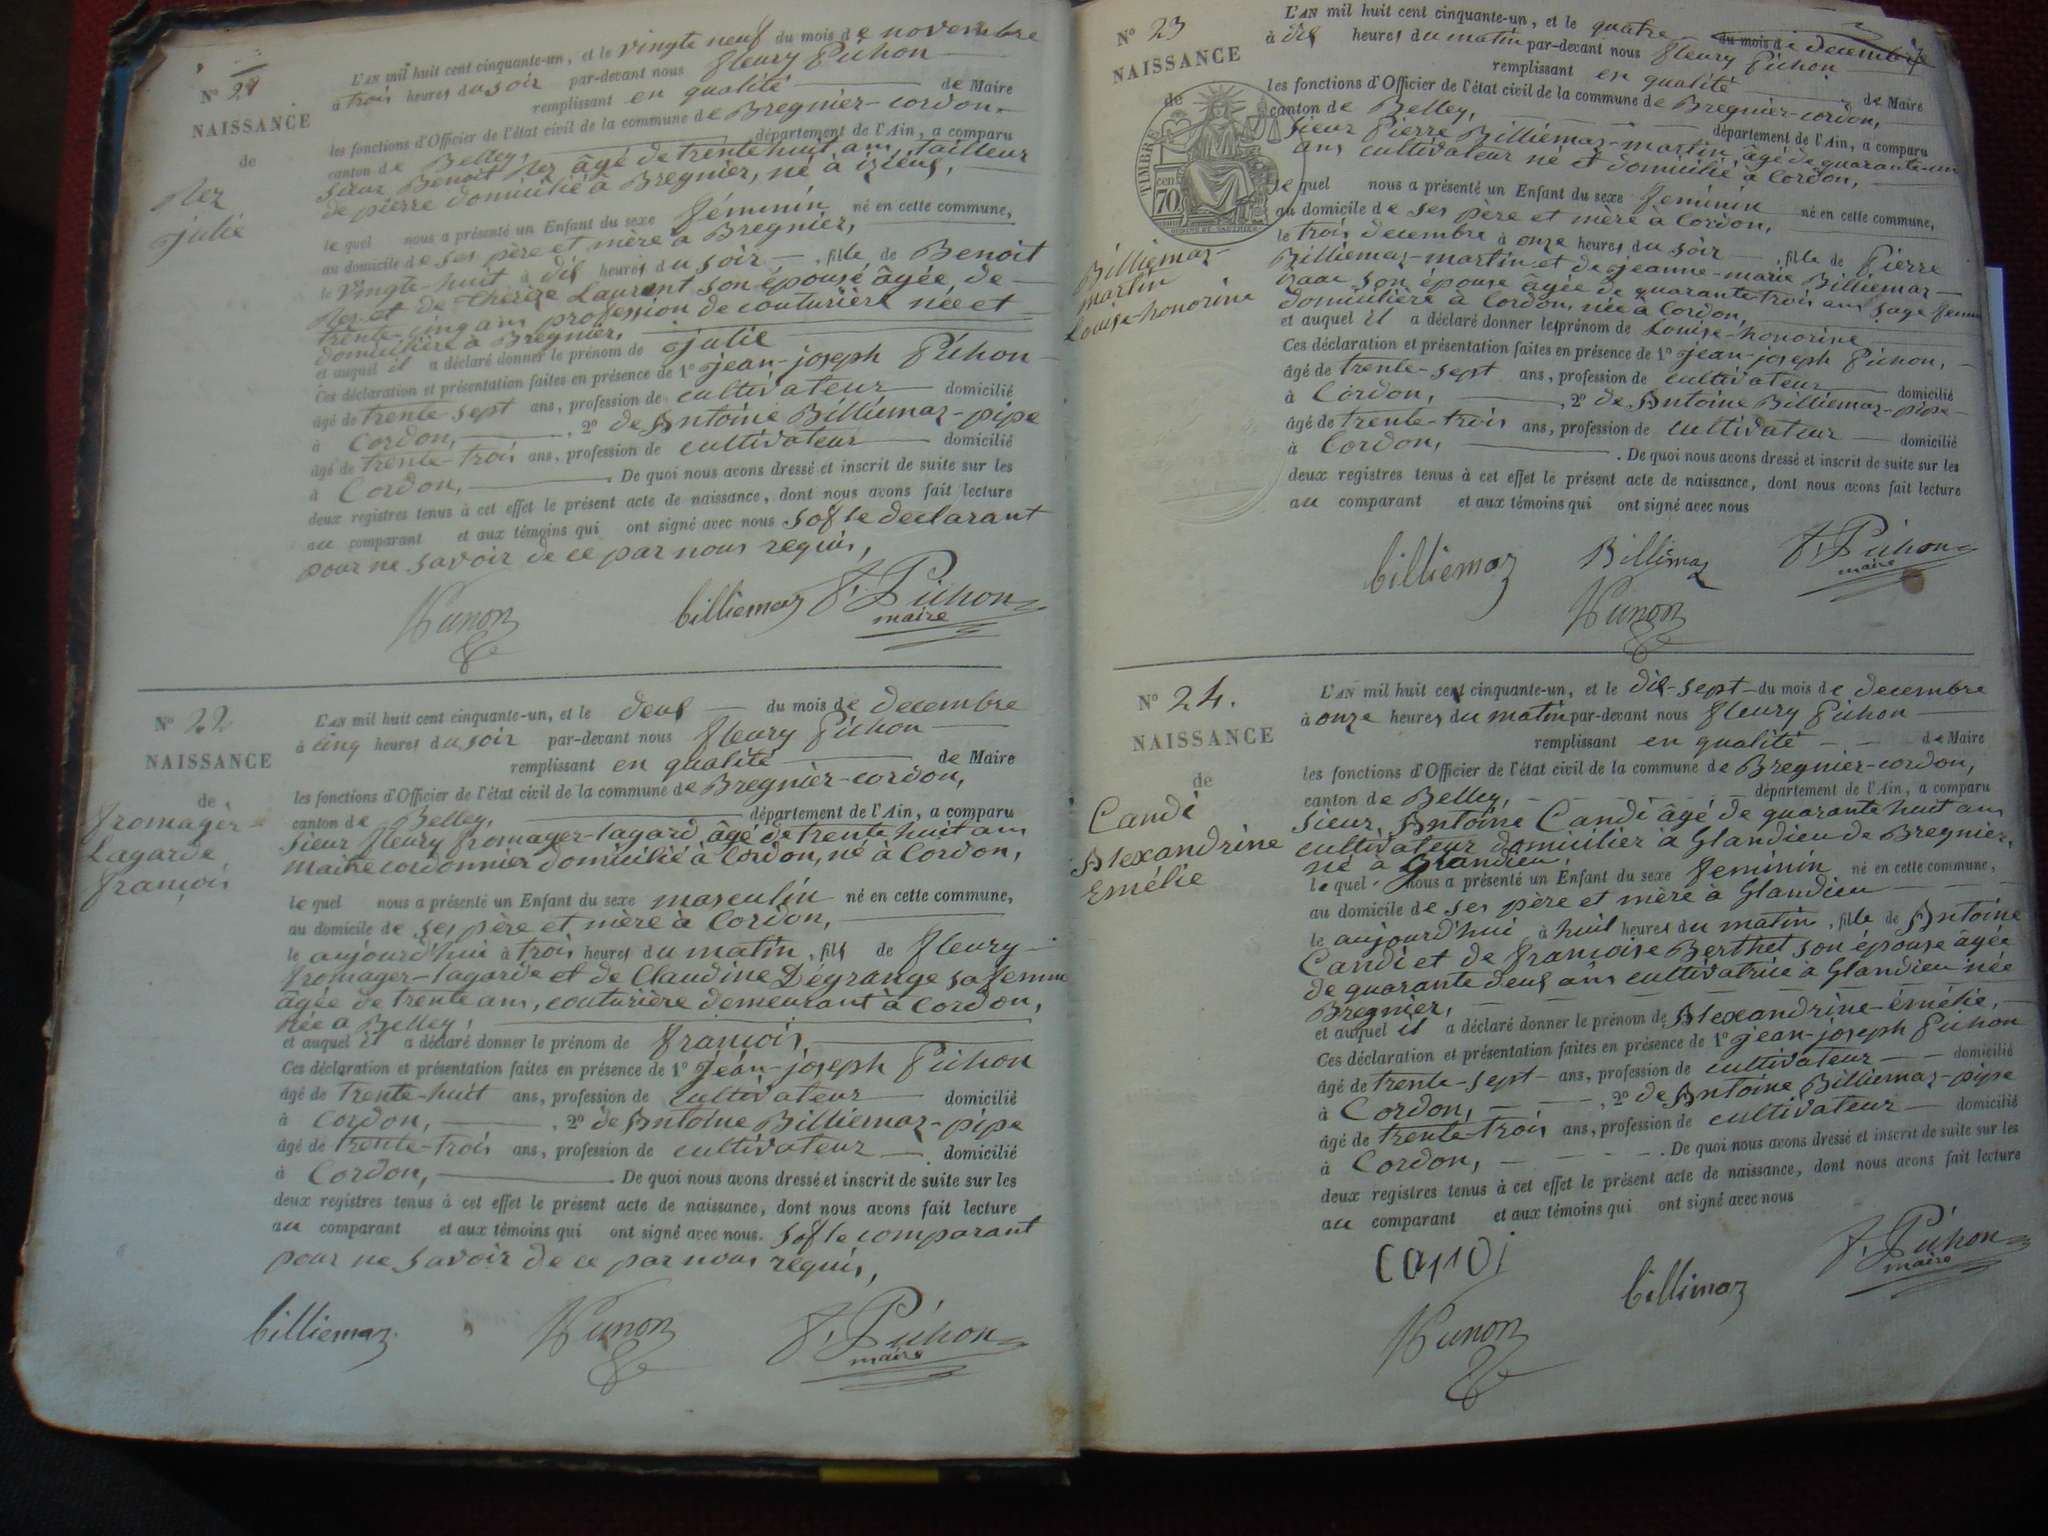 N° 21
NAISSANCE
de
Nez
julie
L'AN mil huit cent cinquante-un, et le vingte neuf du mois de novembre
à trois heures du soir par-devant nous fleury Pichon
remplissant en qualité de Maire
les fonctions d'Officier de l'état civil de la commune de Bregnier-cordon,
canton de Belley, département de l'Ain, a comparu
sieur Benoit Nez âgé de trente huit ans, tailleur
de pierre domicilié à Bregnier, né à izieux,
le quel nous a présenté un Enfant du sexe féminin né en cette commune,
au domicile de ses père et mère à Bregnier,
le vingte-huit à dix heures du soir, fille de Benoit
Nez et de thérèze Laurent son épouse âgée de
trente-cinq ans profession de couturière née et
domicilière à Bregnier,
et auquel il a déclaré donner le prénom de julie
Ces déclaration et présentation faites en présence de 1° jean-joseph Pichon
âgé de trente-sept ans, profession de cultivateur domicilié
à Cordon, 2° de Antoine Billiemaz-pipe
âgé de trente-trois ans, profession de cultivateur domicilié
à Cordon, De quoi nous avons dressé et inscrit de suite sur les
deux registres tenus à cet effet le présent acte de naissance, dont nous avons fait lecture
au comparant et aux témoins qui ont signé avec nous sof le declarant
pour ne savoir de ce par nous requis,
billiemaz F. Pichon
maire
N° 22
NAISSANCE
de
fromager-
Lagarde
françois
L'AN mil huit cent cinquante-un, et le deux du mois de decembre
à cinq heures du soir par-devant nous fleury Pichon
remplissant en qualité de Maire
les fonctions d'Officier de l'état civil de la commune de Bregnier-cordon,
canton de Belley, département de l'Ain, a comparu
sieur fleury fromager-lagard, âgé de trente huit ans
maitre cordonnier domicilié à Cordon, né à Cordon,
le quel nous a présenté un Enfant du sexe masculin né en cette commune,
au domicile de ses père et mère à Cordon,
le aujourd'hui à trois heures du matin, fils de fleury
fromager-lagarde et de Claudine Dégrange sa femme
âgée de trente ans, couturière demeurant à Cordon,
née a Belley,
et auquel il a déclaré donner le prénom de françois,
Ces déclaration et présentation faites en présence de 1° jean-joseph Pichon
âgé de trente-huit ans, profession de cultivateur domicilié
à Cordon, 2° de Antoine Billiemaz-pipe
âgé de trente-trois ans, profession de cultivateur domicilié
à Cordon, De quoi nous avons dressé et inscrit de suite sur les
deux registres tenus à cet effet le présent acte de naissance, dont nous avons fait lecture
au comparant et aux témoins qui ont signé avec nous. sof le comparant
pour ne savoir de ce par nous requis,
billiemaz F. Pichon
maire
N° 23
NAISSANCE
de
TIMBRE
70 cent
Billiemaz-
martin
Louise-honorine
L'AN mil huit cent cinquante-un, et le quatre du mois de decembre
à dix heures du matin par-devant nous fleury Pichon
remplissant en qualité de Maire
les fonctions d'Officier de l'état civil de la commune de Bregnier-cordon,
canton de Belley, département de l'Ain, a comparu
sieur Pierre Billiemaz-martin, âgé de quarante-un
ans cultivateur né et domicilié à Cordon,
le quel nous a présenté un Enfant du sexe feminin né en cette commune,
au domicile de ses père et mère à Cordon,
le trois decembre à onze heures du soir, fille de Pierre
Billiemaz-martin et de jeanne-marie Billiemaz-
son épouse âgée de quarante trois ans sage femme
domicilière à Cordon, née à Cordon,
et auquel il a déclaré donner les prénom de Louise-honorine
Ces déclaration et présentation faites en présence de 1° jean-joseph Pichon,
âgé de trente-sept ans, profession de cultivateur domicilié
à Cordon, 2° de Antoine Billiemaz-pipe
âgé de trente-trois ans, profession de cultivateur domicilié
à Cordon, De quoi nous avons dressé et inscrit de suite sur les
deux registres tenus à cet effet le présent acte de naissance, dont nous avons fait lecture
au comparant et aux témoins qui ont signé avec nous
billiemaz Billimaz F. Pichon
maire
N° 24.
NAISSANCE
de
Candi
Alexandrine
Emélie
L'AN mil huit cent cinquante-un, et le dix-sept du mois de decembre
à onze heures du matin par-devant nous fleury Pichon
remplissant en qualité de Maire
les fonctions d'Officier de l'état civil de la commune de Bregnier-cordon,
canton de Belley, département de l'Ain, a comparu
sieur Antoine Candi âgé de quarante huit ans
cultivateur domicilier à Glandieu de Bregnier,
né à Glandieu,
le quel nous a présenté un Enfant du sexe feminin né en cette commune,
au domicile de ses père et mère à Glandieu
le aujourd'hui à huit heures du matin, fille de Antoine
Candi et de françoise Berthet son épouse âgée
de quarante deux ans cultivatrice à Glandieu née
Bregnier,
et auquel il a déclaré donner le prénom de Alexandrine-émélie,
Ces déclaration et présentation faites en présence de 1° jean-joseph Pichon
âgé de trente-sept ans, profession de cultivateur domicilié
à Cordon, 2° de Antoine Billiemaz-pipe
âgé de trente-trois ans, profession de cultivateur domicilié
à Cordon, De quoi nous avons dressé et inscrit de suite sur les
deux registres tenus à cet effet le présent acte de naissance, dont nous avons fait lecture
au comparant et aux témoins qui ont signé avec nous
billimaz F. Pichon
maire